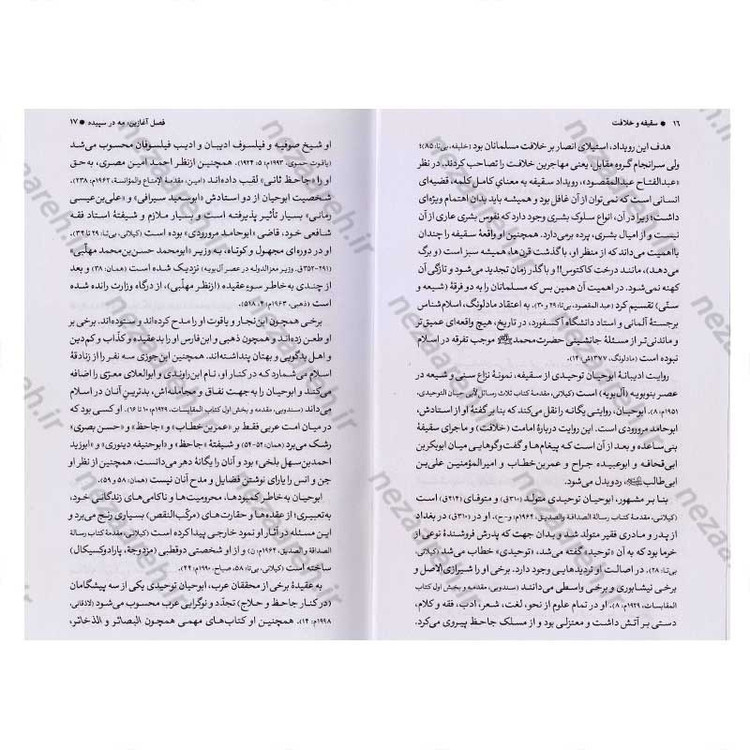 ۱۶ ● سقیفه و خلافت
هدف این رویداد، استیلای انصار بر خلافت مسلمانان بود (خلیفه، بی‌تا: ۸۵)؛
ولی سرانجام گروه مقابل، یعنی مهاجرین خلافت را تصاحب کردند. در نظر
«عبدالفتاح عبدالمقصود»، رویداد سقیفه به معنای کامل کلمه، قضیه‌ای
انسانی است که نمی‌توان از آن غافل بود و همیشه باید بدان اهتمام ویژه‌ای
داشت؛ زیرا در آن، انواع سلوک بشری وجود دارد که نفوس بشری عاری از آن
نیست و از امیال بشری، پرده برمی‌دارد. همچنین او واقعهٔ سقیفه را چندان
بااهمیت می‌داند که از منظر او، با گذشت قرن‌ها، همیشه سبز است (و برگ
می‌دهد)، مانند درخت کاکتوس!! و با گذر زمان تجدید می‌شود و تازگی آن
کهنه نمی‌شود. در اهمیت آن همین بس که مسلمانان را به دو فرقهٔ (شیعه و
سنّی) تقسیم کرد (عبدالمقصود، بی‌تا: ۲۹ و ۳۰). به اعتقاد مادلونگ، اسلام‌شناس
برجستهٔ آلمانی و استاد دانشگاه آکسفورد، در تاریخ، هیچ واقعه‌ای عمیق‌تر
و ماندنی‌تر از مسئلهٔ جانشینی حضرت‌محمد موجب تفرقه در اسلام
نبوده است (مادلونگ، ۱۳۷۷ش: ۱۴).
روایت ادیبانهٔ ابوحیان توحیدی از سقیفه، نمونهٔ نزاع سنی و شیعه در
عصر بنوبویه (آل‌بویه) است (کیلانی، مقدمه کتاب ثلاث رسائل لأبی حیان التوحیدی،
۱۹۵۱م: ۸). ابوحیان، روایتی یگانه را نقل می‌کند که بنا بر گفتهٔ او از استادش،
ابوحامد مرورودی است. این روایت دربارهٔ امامت (خلافت) و ماجرای سقیفه
بنی‌ساعده و بعد از آن است که پیغام‌ها و گفت‌وگوهایی میان ابوبکربن
ابی‌قحافه و ابوعبیده جراح و عمربن‌خطاب و امیرالمؤمنین علی‌بن
ابی‌طالب ردوبدل می‌شود.
بنا بر مشهور، ابوحیان توحیدی متولد (۳۱۰ق) و متوفای (۴۱۴ق) است
(کیلانی، مقدمه کتاب رسالة الصداقة والصدیق، ۱۹۶۴م: و-ح). او در (۳۱۰ق) در بغداد
از پدر و مادری فقیر متولد شد و بدان جهت که پدرش فروشندهٔ نوعی از
خرما بود که به آن «توحید» گفته می‌شد، «توحیدی» خطاب می‌شد (کیلانی،
بی‌تا: ۲۱). در اصالت او تردیدهایی وجود دارد. برخی او را شیرازی‌الاصل و
برخی نیشابوری و برخی واسطی می‌دانند (سندوبی، مقدمه و بخش اول کتاب
المقابسات، ۱۹۲۹م: ۸). او در تمام علوم از نحو، لغت، شعر، ادب، فقه و کلام،
دستی بر آتش داشت و معتزلی بود و از مسلک جاحظ پیروی می‌کرد.
فصل آغازین: مه در سپیده ● ۱۷
او شیخ صوفیه و فیلسوف ادیبان و ادیب فیلسوفان محسوب می‌شد
(یاقوت حموی، ۱۹۹۳م: ۵، ۱۹۲۴). همچنین ازنظر احمد امین مصری، به‌حق
او را «جاحظ ثانی» لقب داده‌اند (امین، مقدمة الإمتاع والمؤانسة، ۱۹۶۲م: ۲۳۸).
شخصیت ابوحیان از دو استادش «ابوسعید سیرافی» و «علی‌بن‌عیسی
رمانی» بسیار تأثیر پذیرفته است و بسیار ملازم و شیفتهٔ استاد فقه
شافعی خود، قاضی «ابوحامد مرورودی» بوده است (کیلانی، بی‌تا: ۲۹ تا ۳۴).
او در دوره‌ای مجهول و کوتاه، به وزیر «ابومحمد حسن‌بن‌محمد مهلّبی»
(۲۹۱-۳۵۲ق. وزیر معزالدوله در عصر آل‌بویه) نزدیک شده است (همان: ۳۸) و بعد
از چندی به خاطر سوءعقیده (ازنظر مهلّبی)، از درگاه وزارت رانده شده
است (ذهبی، ۱۹۶۳م: ۴، ۵۱۸).
برخی همچون ابن‌نجار و یاقوت او را مدح کرده‌اند و ستوده‌اند. برخی بر
او طعن زده‌اند و همچون ذهبی و ابن‌فارس او را بدعقیده و کذّاب و کم‌دین
و اهل بدگویی و بهتان پنداشته‌اند. همچنین ابن‌جوزی سه نفر را از زنادقهٔ
اسلام می‌شمارد که در کنار او، نام ابن‌راوندی و ابوالعلای معرّی را اضافه
می‌کند و ابوحیان را به جهت نفاق و مجامله‌اش، بدترین آنان در اسلام
می‌داند (سندوبی، مقدمه و بخش اول کتاب المقابسات، ۱۹۲۹م: ۱۰ تا ۱۶). او کسی بود که
در میان امت عربی فقط بر «عمربن‌خطاب» و «جاحظ» و «حسن بصری»
رشک می‌برد (همان: ۵۲-۵۴) و شیفتهٔ «جاحظ» و «ابوحنیفه دینوری» و «ابوزید
احمدبن‌سهل بلخی» بود و آنان را یگانهٔ دهر می‌دانست، همچنین از نظر او
جن و انس را یارای نوشتن فضایل و مدح آنان نیست (همان: ۵۸ و ۵۹).
ابوحیان به خاطر کمبودها، محرومیت‌ها و ناکامی‌های زندگانی خود،
به‌تعبیری از عقده‌ها و حقارت‌های (مرکّب‌النقص) بسیاری رنج می‌برد و
این مسئله در آثار او نمود خارجی پیدا کرده است (کیلانی، مقدمه کتاب رسالة
الصداقة و الصدیق، ۱۹۶۴م: ن) و از او شخصیتی دوقطبی (مزدوجة، پارادوکسیکال)
ساخته است (کیلانی، بی‌تا: ۵۸، صباح، ۱۹۹۰م: ۴۴).
به عقیدهٔ برخی از محققان عرب، ابوحیان توحیدی یکی از سه پیشگامان
(در کنار جاحظ و حلاج) تجدّد و نوگرایی عرب محسوب می‌شود (لاذقانی،
۱۹۹۸م: ۱۴). همچنین او کتاب‌های مهمی همچون البصائر و الذخائر،
nezaareh.ir